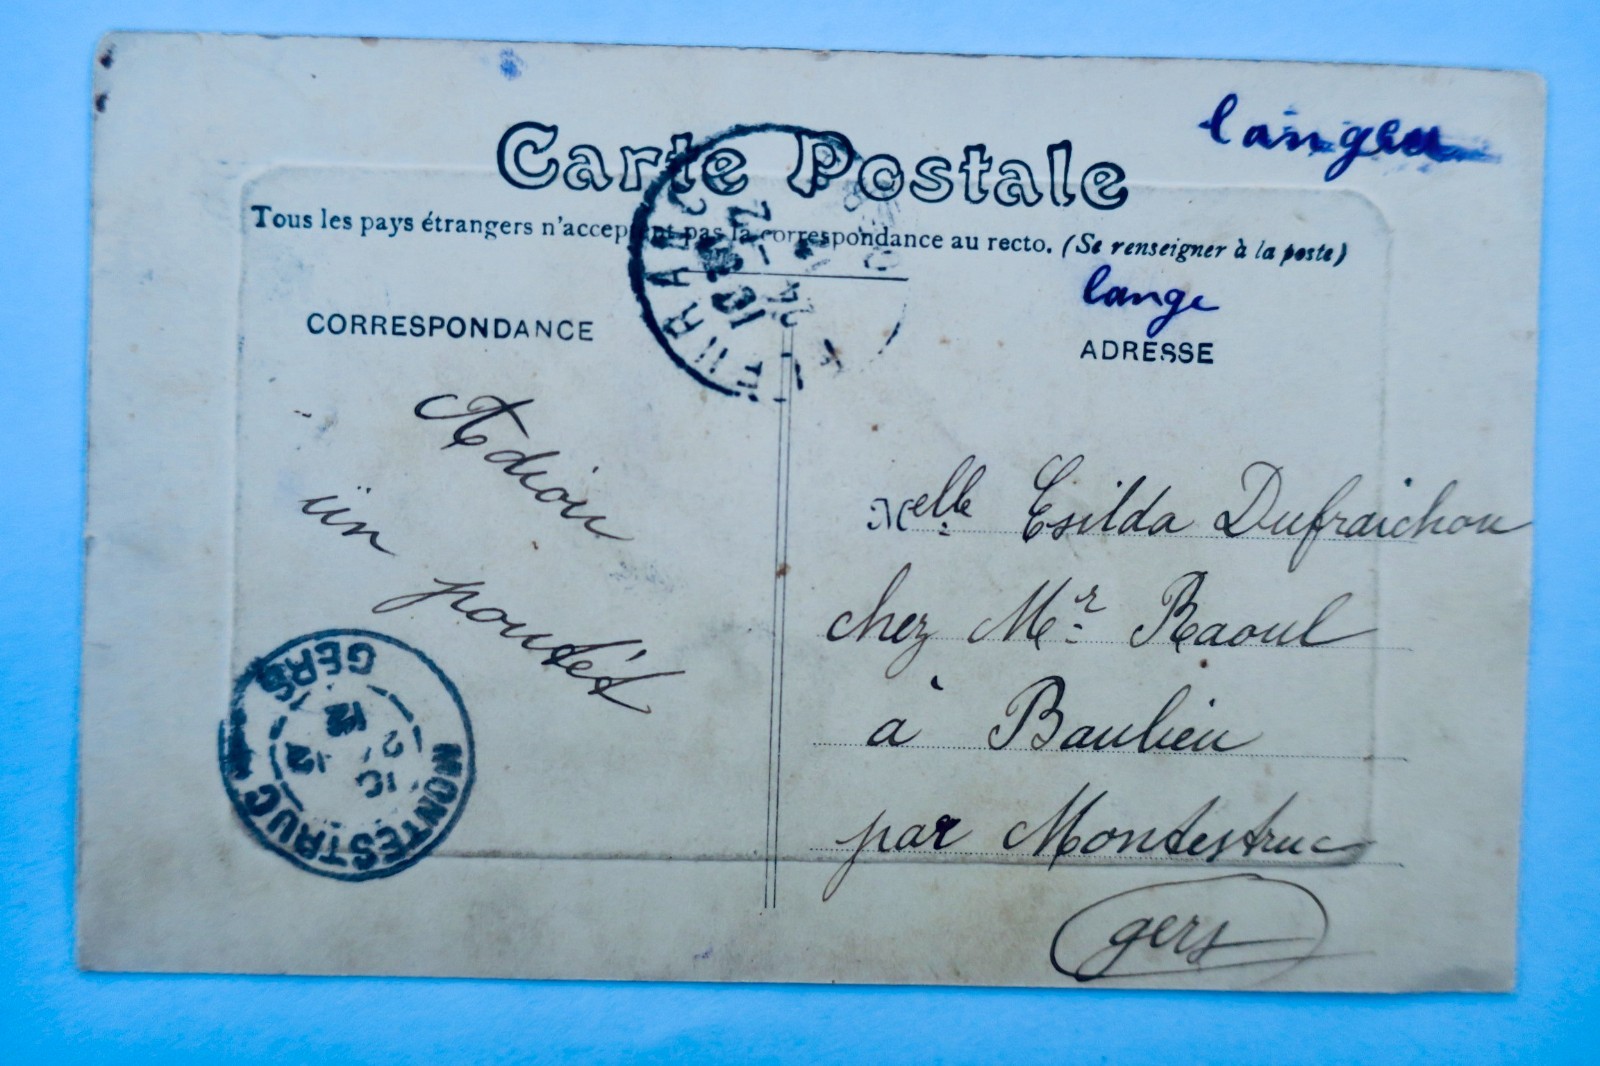 Carte Postale
langeu
Tous les pays étrangers n'acceptent pas la correspondance au recto. (Se renseigner à la poste)
CORRESPONDANCE
Adiou
ün
poutét
MONTESTRUC
GERS
lange
ADRESSE
Melle Esilda Dufraichou
chez Mr Raoul
à Baulieu
par Montestruc
gers